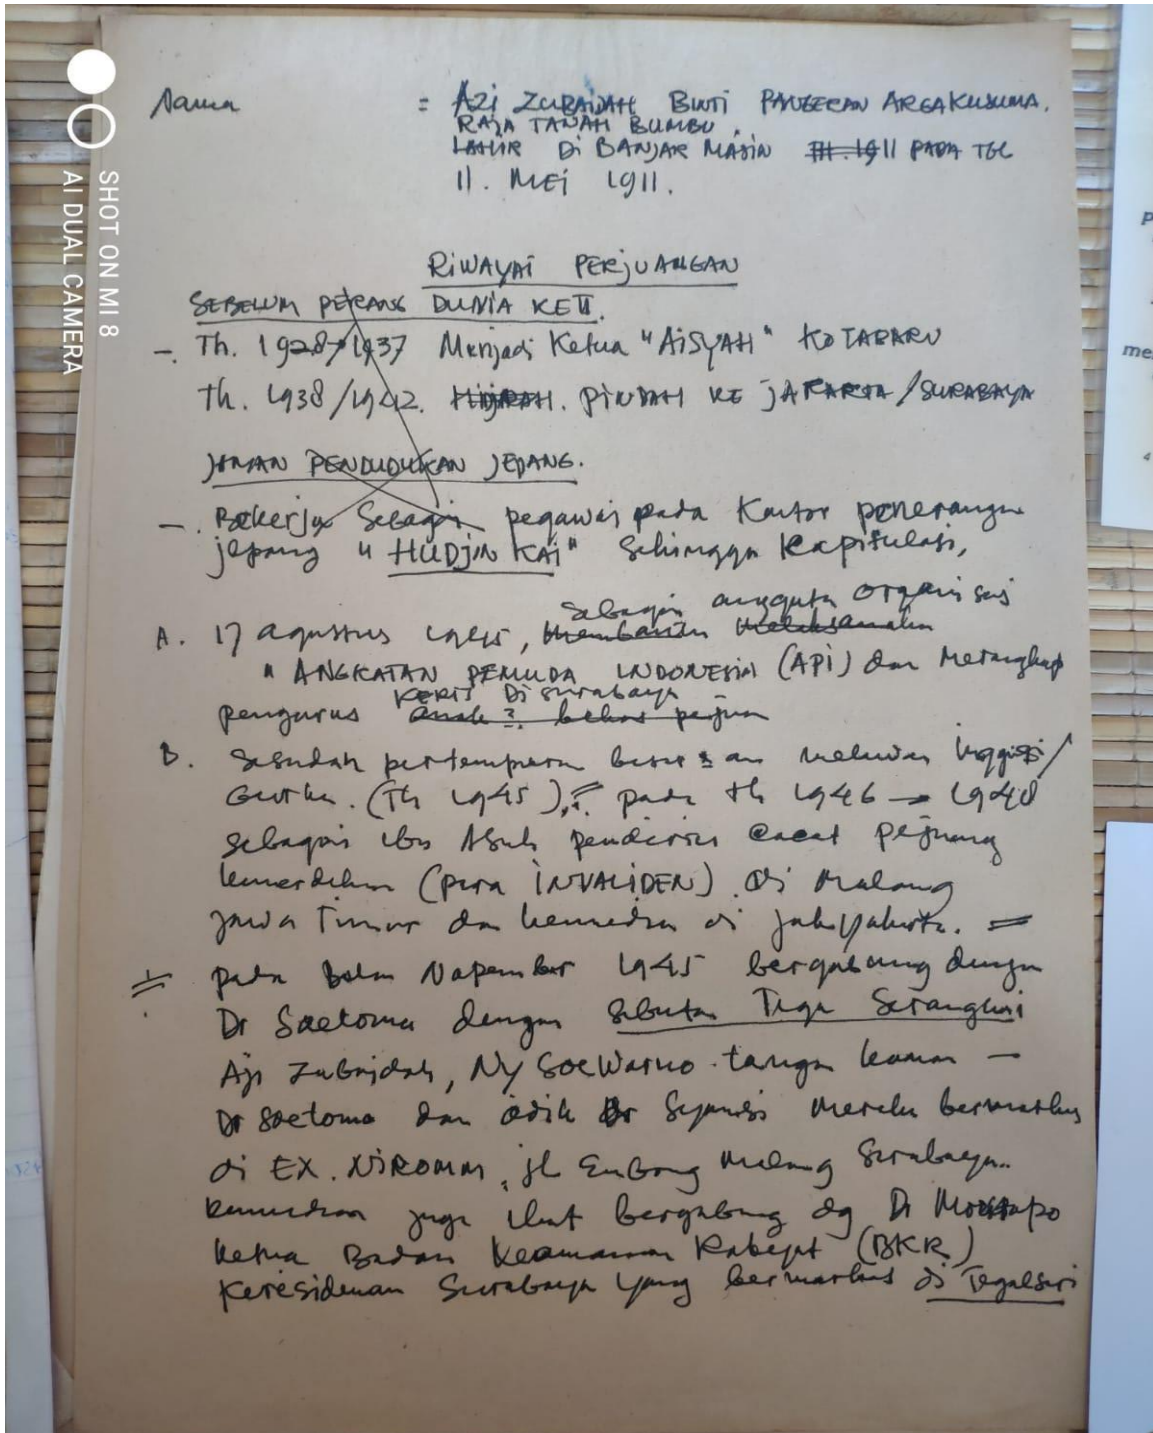 Nama = Azi ZUBAIDAH BINTI PANGERAN ARGAKUSUMA.
RAJA TANAH BUMBU.
LAHIR Di BANJAR MASIN TH. 1911 PADA TGL
11. MEi 1911.
RiWAYAT PERJUANGAN
SEBELUM PERANG DUNIA KE II.
-. Th. 1928/1937 Menjadi Ketua "AiSYAH" KOTABARU
Th. 1938/1942. HIJRAH. PINDAH KE JAKARTA/SURABAYA
JAMAN PENDUDUKAN JEPANG.
-. Bekerja Sebagai pegawai pada Kantor penerangan
jepang "HUDJIN KAI" Sehingga Kapitulasi,
sebagai anggota organisasi
A. 17 agustus 1945, Membantu Melaksanakan
"ANGKATAN PEMUDA INDONESIA (API) dan Merangkap
KERIS Di Surabaya
pengurus anak2 bekas
B. Sesudah pertempuran besar an melawan Inggris/
Gurka. (Th 1945), pada th 1946 → 1948
sebagai ibu Asuh penderita Cacat pejuang
kemerdekaan (para INVALIDEN) di Malang
jawa Timur dan kemudian di jokyakarta. =
pada Bulan Nopember 1945 bergabung dengan
Dr Soetomo dengan sebutan Tiga Serangkai
Aji Zubaidah, Ny Soewarno tangan kanan -
Dr Soetomo dan adik Dr Sjamsi Mereka bermarkas
di EX. NiROMM, jl Embong Malang Surabaya.
kemudian juga ikut bergabung dg Dr Moestopo
ketua Badan Keamanan Rakyat (BKR)
Keresidenan Surabaya yang bermarkas di Tegalsari
SHOT ON MI 8
AI DUAL CAMERA